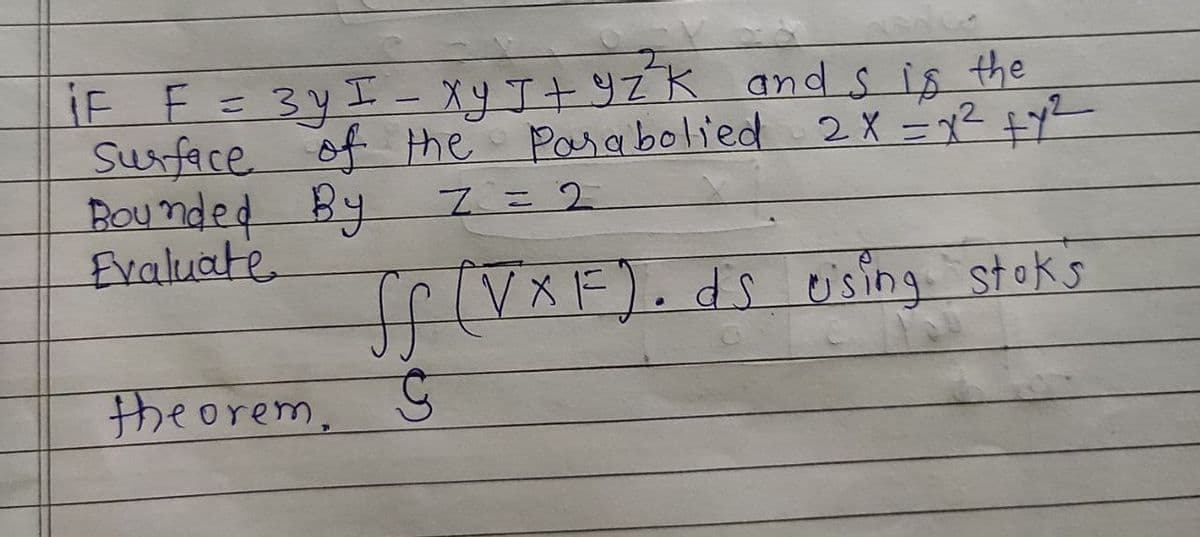 iF F = 3y I - xy J + yz²K and s is the
Surface of the Parabolied 2x = x² + y²
Bounded By z = 2
Evaluate
∬ (∇ X F). ds using stok's
S
theorem.